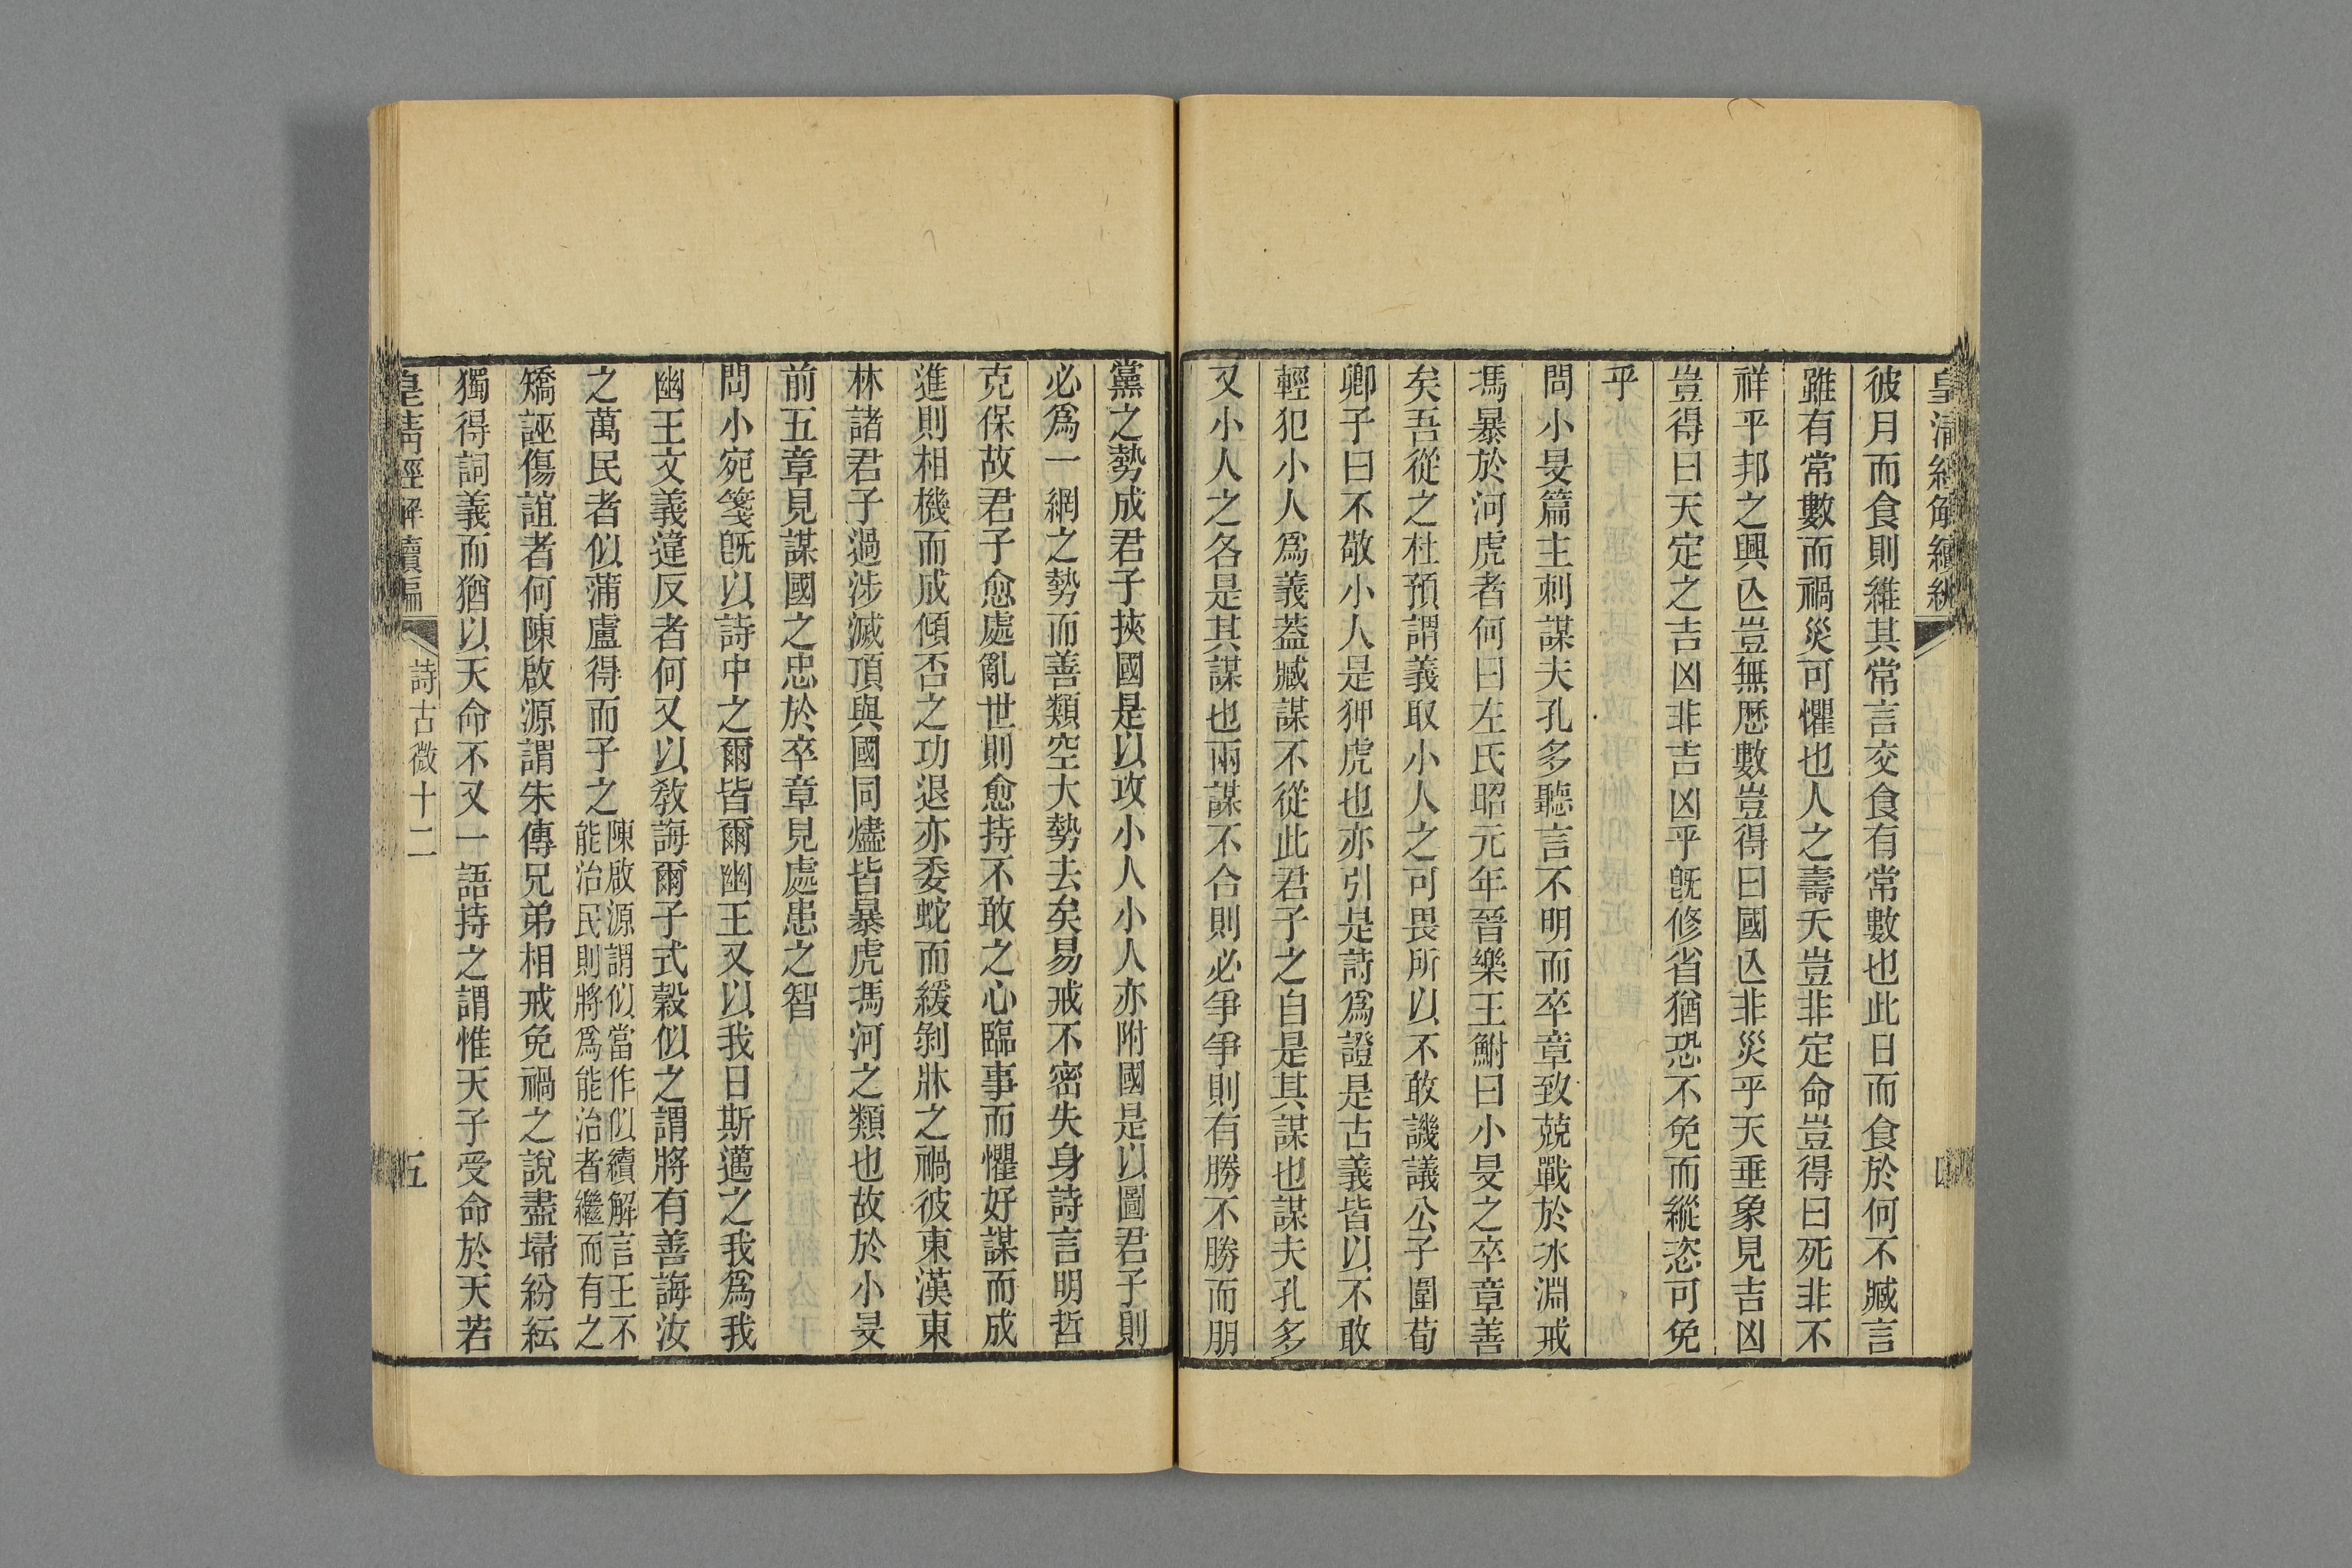 皇清經解續編
彼月而食則維其常言交食有常數也此日而食於何不臧言
雖有常數而禍災可懼也人之壽夭豈非定命豈得曰死非不
祥乎邦之興亾豈無歷數豈得曰國亾非災乎天垂象見吉凶
豈得曰天定之吉凶非吉凶乎旣修省猶恐不免而縱恣可免
乎
問小旻篇主刺謀夫孔多聽言不明而卒章致兢戰於冰淵戒
馮暴於河虎者何曰左氏昭元年晉樂王鮒曰小旻之卒章善
矣吾從之杜預謂義取小人之可畏所以不敢譏議公子圍荀
卿子曰不敬小人是狎虎也亦引是詩爲證是古義皆以不敢
輕犯小人爲義蓋臧謀不從此君子之自是其謀也謀夫孔多
又小人之各是其謀也兩謀不合則必爭爭則有勝不勝而朋
黨之勢成君子挾國是以攻小人小人亦附國是以圖君子則
必爲一網之勢而善類空大勢去矣易戒不密失身詩言明哲
克保故君子愈處亂世則愈持不敢之心臨事而懼好謀而成
進則相機而成傾否之功退亦委蛇而緩剝牀之禍彼東漢東
林諸君子過涉滅頂與國同燼皆暴虎馮河之類也故於小旻
前五章見謀國之忠於卒章見處患之智
問小宛箋旣以詩中之爾皆爾幽王又以我日斯邁之我爲我
幽王文義違反者何又以敎誨爾子式穀似之謂將有善誨汝
之萬民者似蒲盧得而子之
陳啟源謂似當作似續解言王不
能治民則將爲能治者繼而有之
矯誣傷誼者何陳啟源謂朱傳兄弟相戒免禍之說盡埽紛紜
獨得詞義而猶以天命不又一語持之謂惟天子受命於天若
皇清經解續編
詩古微十二
五